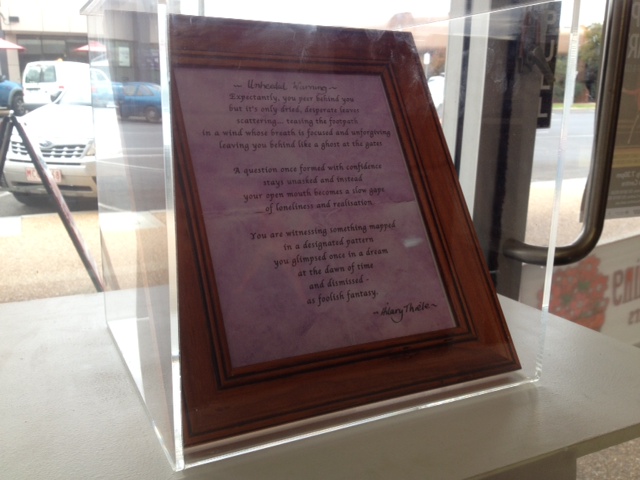 ~ Unheeded Warning ~
Expectantly, you peer behind you
but it's only dried, desperate leaves
scattering... teasing the footpath
in a wind whose breath is focused and unforgiving
leaving you behind like a ghost at the gates
A question once formed with confidence
stays unasked and instead
your open mouth becomes a slow gape
of loneliness and realisation.
You are witnessing something mapped
in a designated pattern
you glimpsed once in a dream
at the dawn of time
and dismissed -
as foolish fantasy.